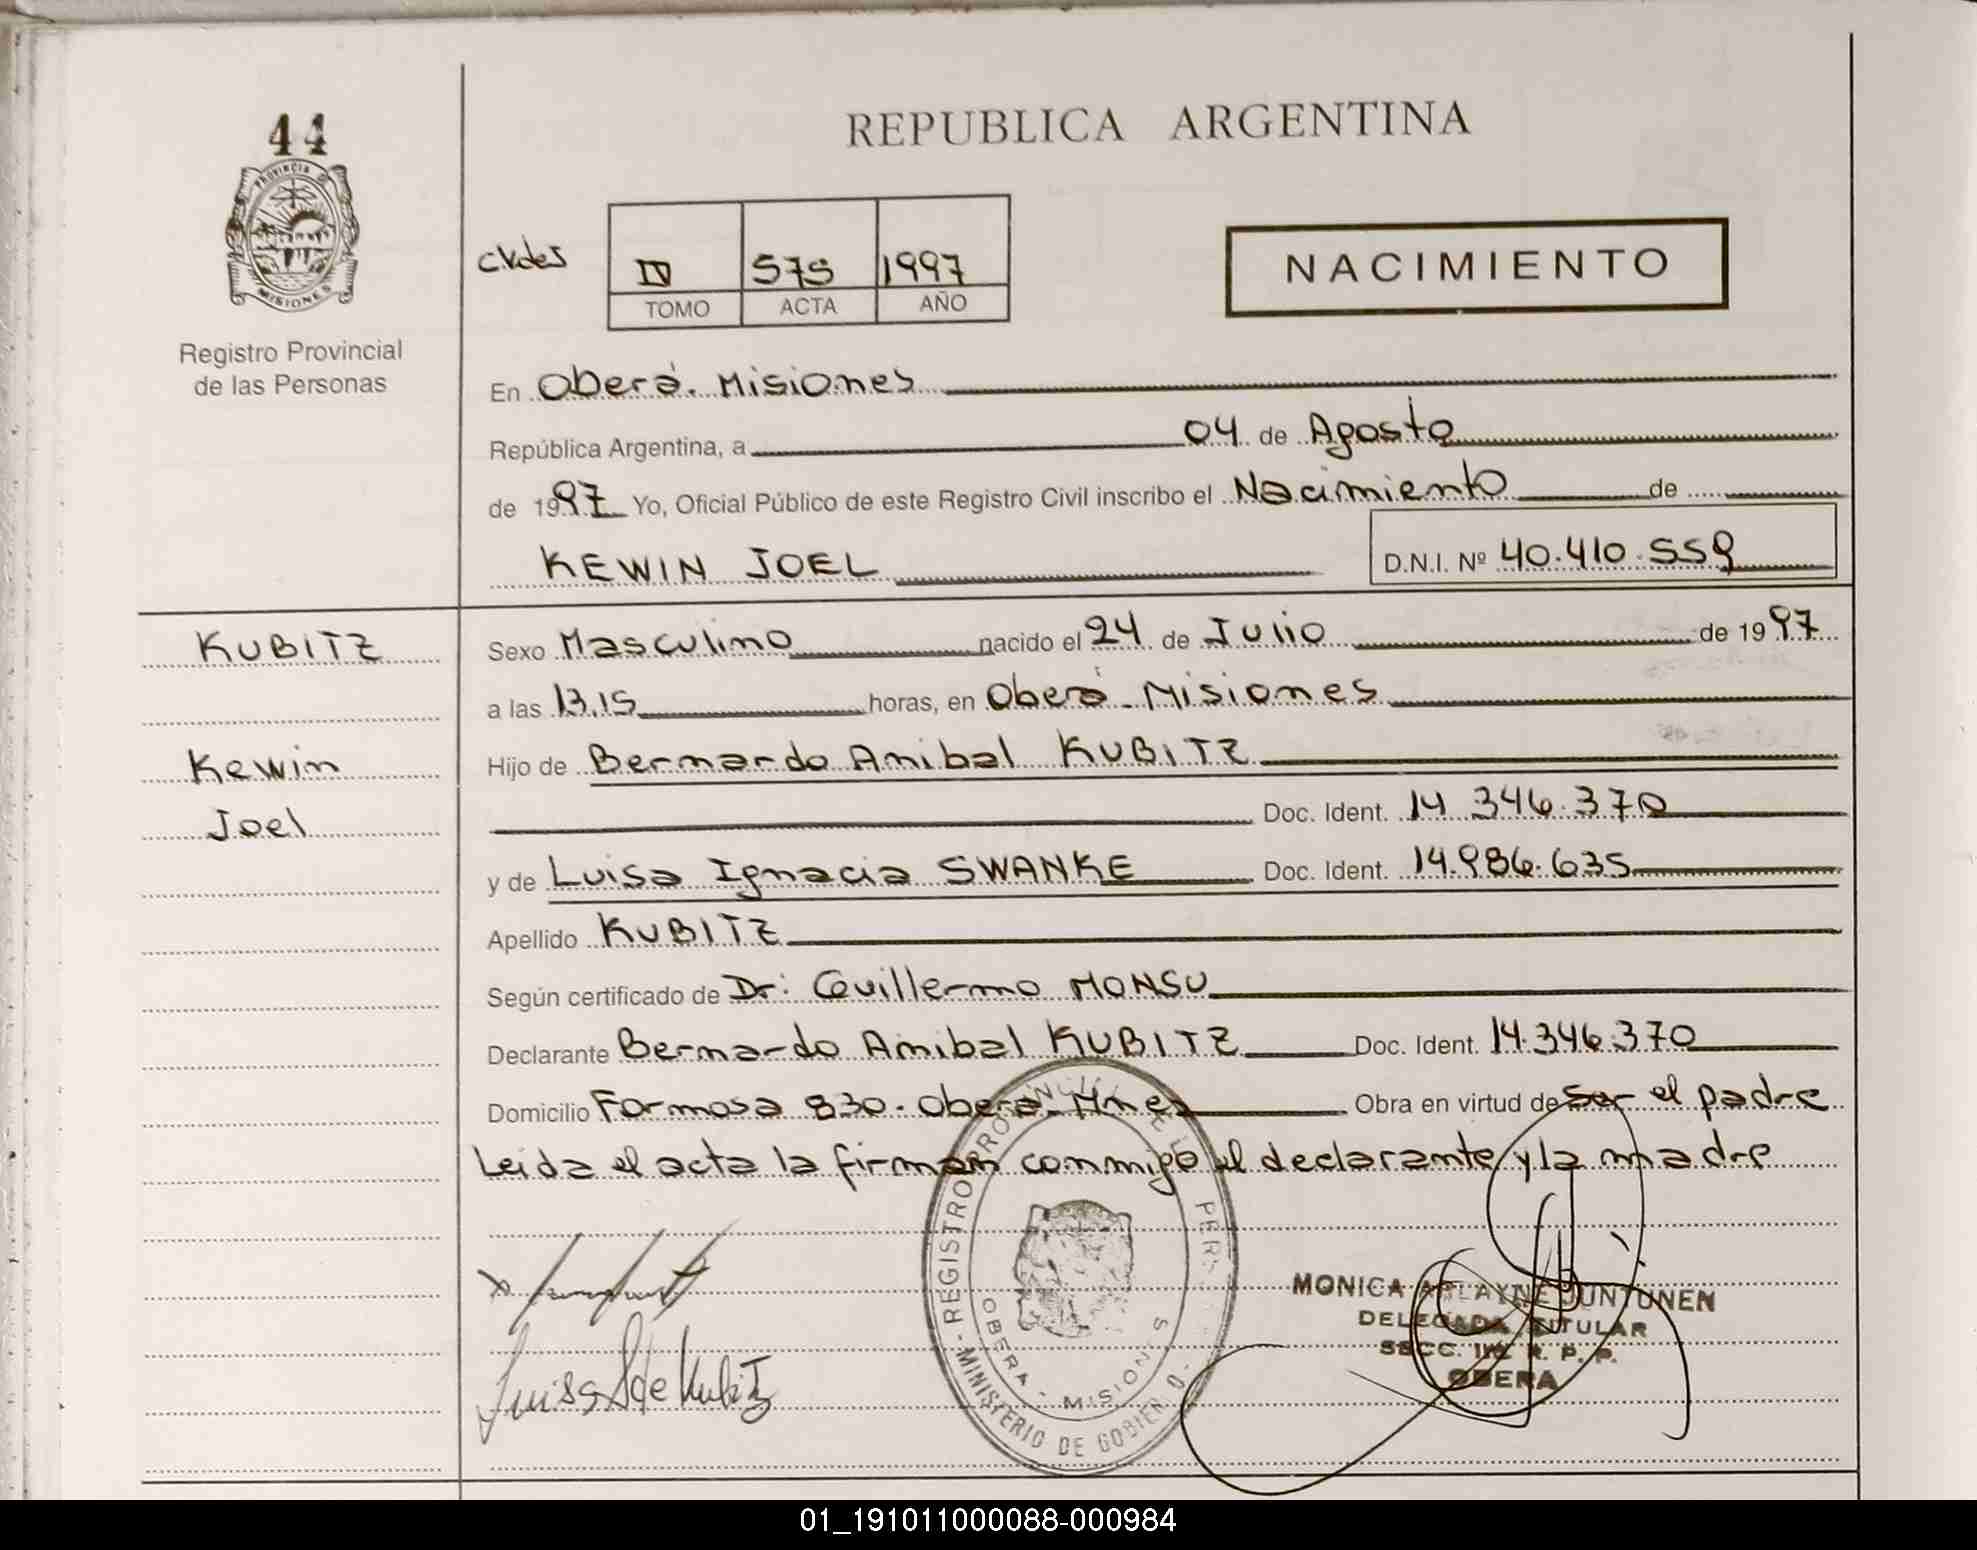 44
PROVINCIA DE
MISIONES
Registro Provincial
de las Personas
REPUBLICA ARGENTINA
IV 575 1997
TOMO ACTA AÑO
NACIMIENTO
En Oberá. Misiones
República Argentina, a 04 de Agosto
de 1997 Yo, Oficial Público de este Registro Civil inscribo el Nacimiento de
KEWIN JOEL D.N.I. Nº 40.410.559
KUBITZ
Kewin
Joel
Sexo Masculino nacido el 24 de Julio de 1997
a las 13.15 horas, en Oberá - Misiones
Hijo de Bernardo Anibal KUBITZ
Doc. Ident. 14.346.370
y de Luisa Ignacia SWANKE Doc. Ident. 14.986.635
Apellido KUBITZ
Según certificado de Dr: Guillermo MONSU
Declarante Bernardo Anibal KUBITZ Doc. Ident. 14.346.370
Domicilio Formosa 830. Oberá - Mnes Obra en virtud de Ser el padre
Leida el acta la firman conmigo el declarante y la madre
Luisa S de Kubitz
REGISTRO PROVINCIAL DE L PERS
OBERA - MISIONES
MINISTERIO DE GOBIERNO
MONICA JUNTUNEN
DELEGADA TITULAR
R. P. P.
OBERA
01_191011000088-000984